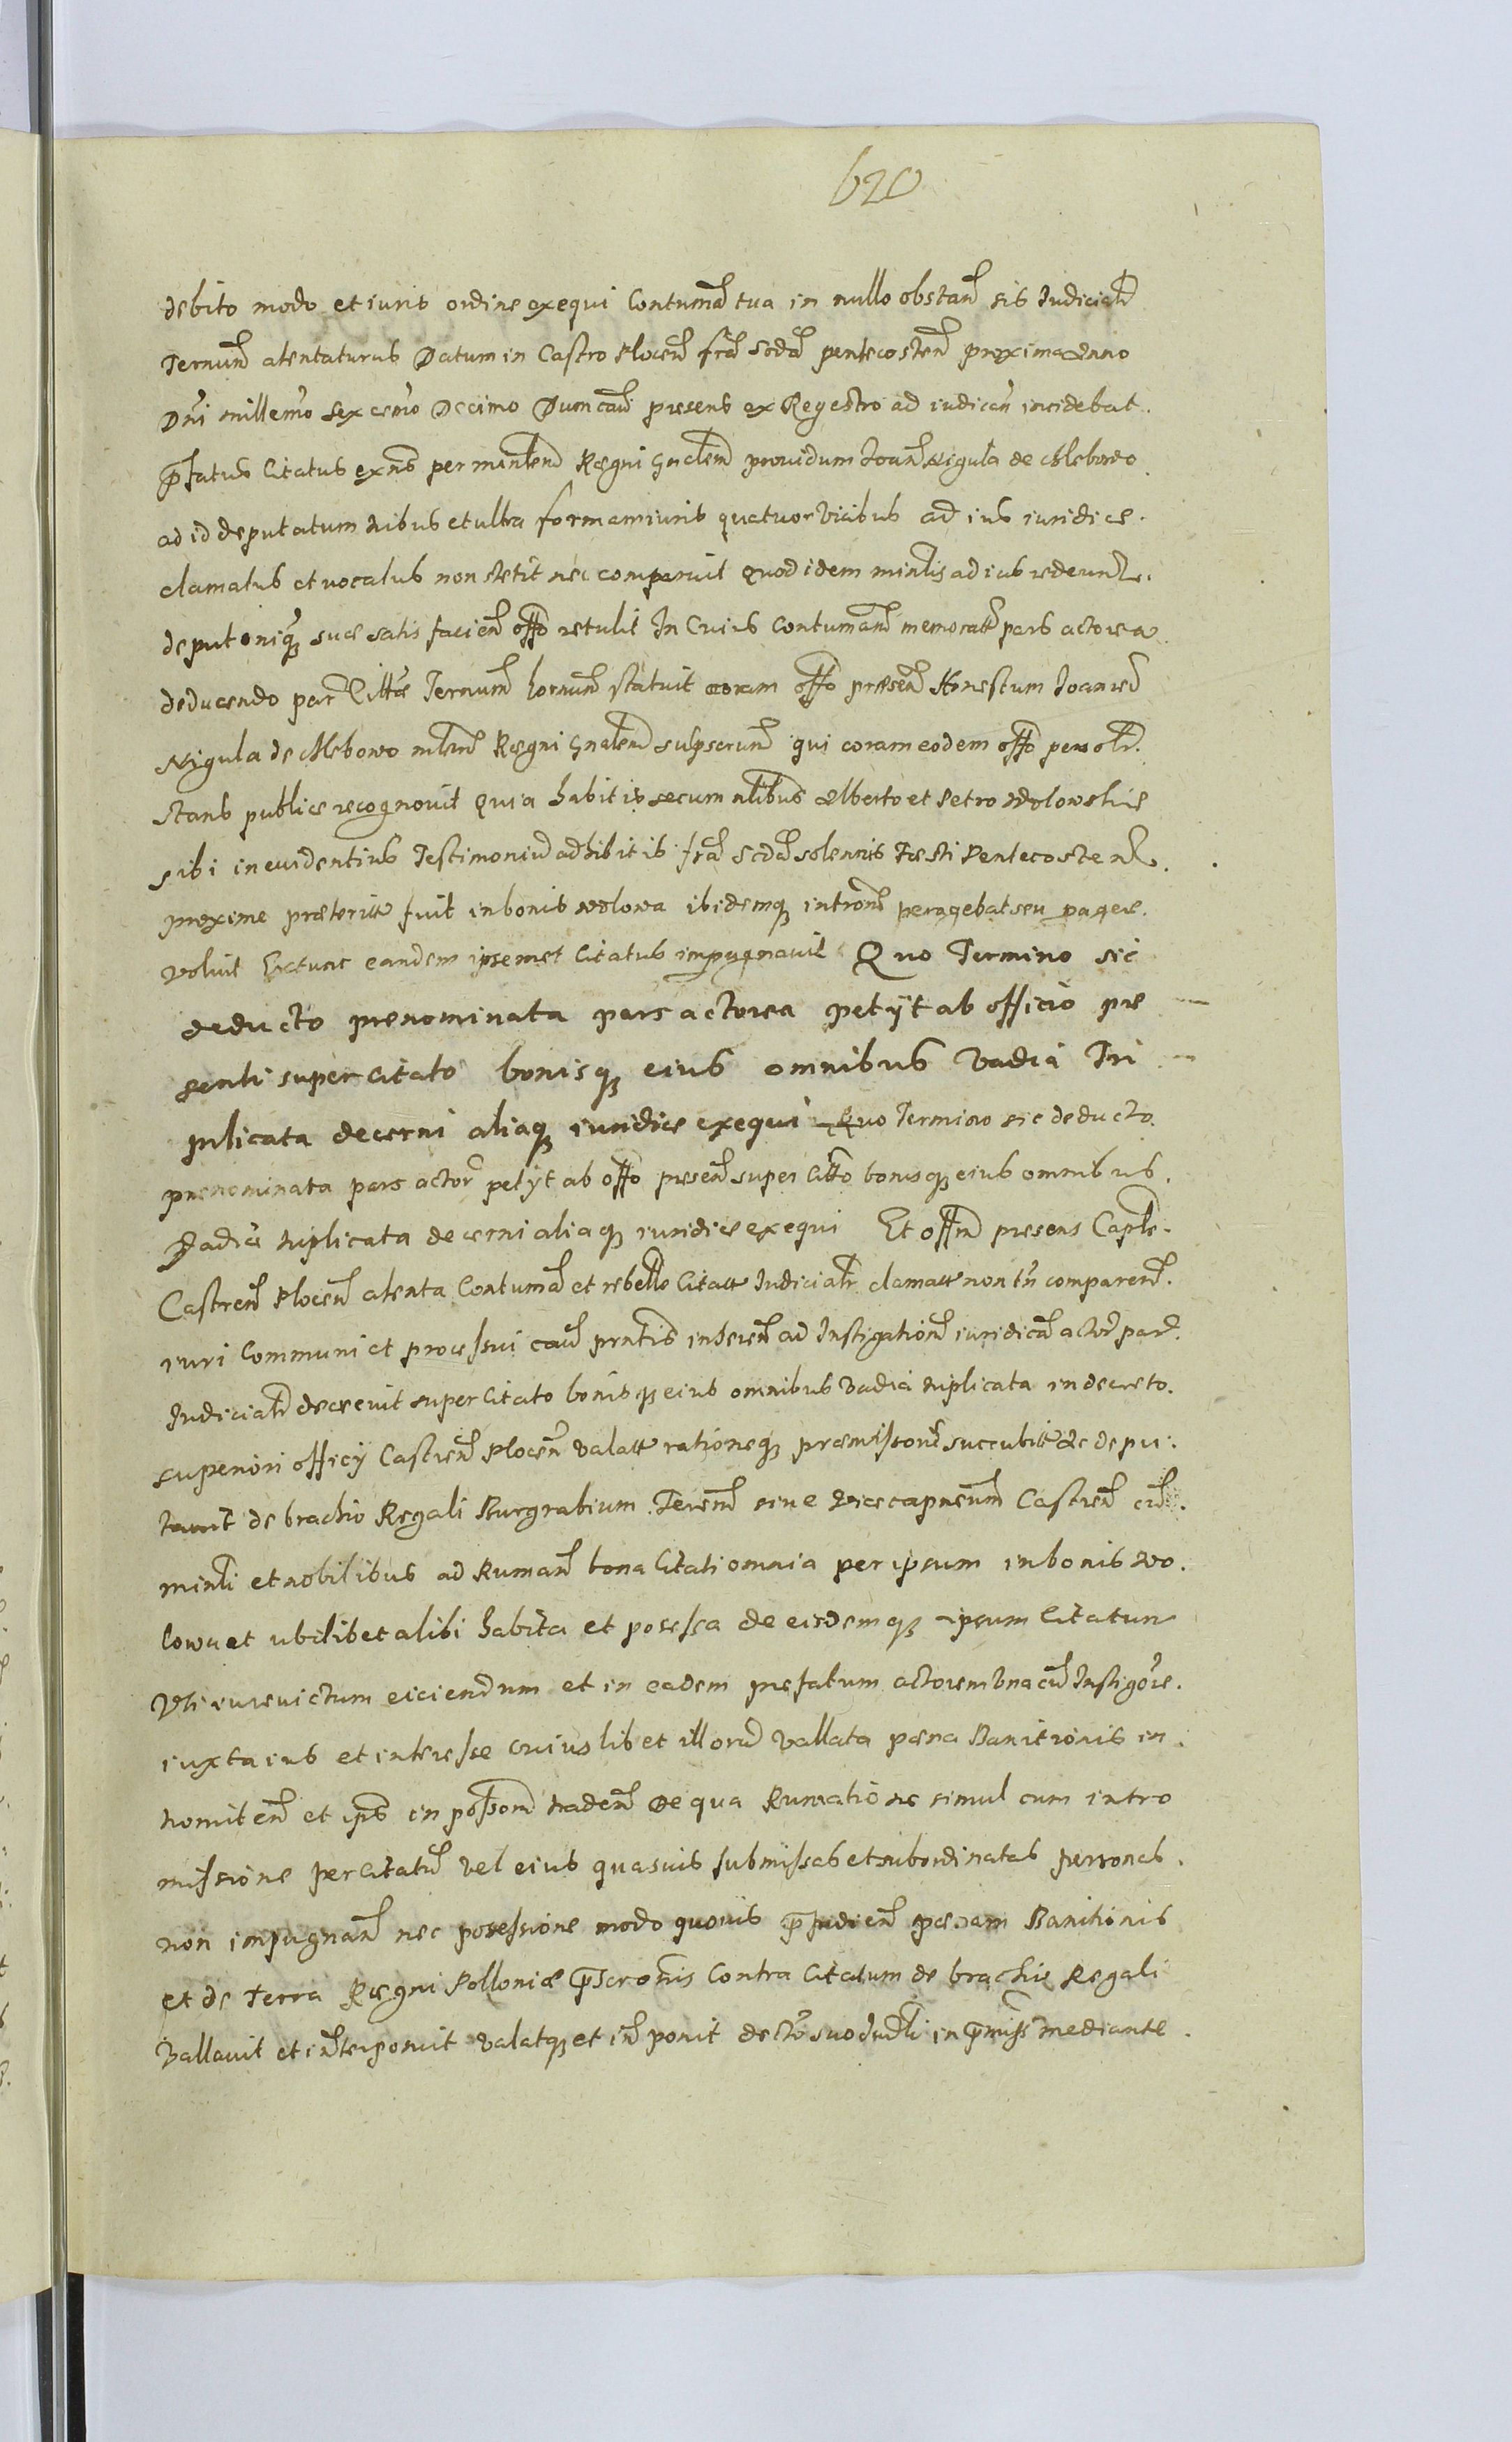 620
debito modo et iuris ordine exequi Contuma tua in nullo obstan sis Judicialr
Termum atentaturus Datum in Castro Plocen fra Scda pentecosten proxima Anno
Dni millemo sexcemo Decimo Dum cau presens ex Regestro ad iudicm incidebat.
Pfatus Citatus exns per minlem Regni Gnalem providum Joan Nigula de Mlebowo
ad id deputatum tribus et ultra formam iuris quatuor vicibus ad ius iuridice.
clamatus et vocatus non stetit nec comparuit Quod idem minlis ad ius redeun
deputoniq suae satis facien offo retulit In Cuius Contuman memorat pars actorea
deducendo par Citt Termum hornum statuit coram offo praesen Honestum Joanem
Nigula de Mlebowo mlem Regni Gnalem supscrum qui coram eodem offo personlr.
stans publice recognovit Quia habitis secum nlibus Alberto et Petro Wolowskie
sibi in evidentius Testimoniu adhibitis fra Scda solennis Festi Pentecosten
proxime praeterit fuit in bonis Wolowa ibidemq introm peragebat seu pager.
voluit Extunc eandem ipsemet Citatus impugnavit Quo Termino sic
deducto prenominata pars actorea petijt ab officio pre
senti super citato bonisq eius omnibus Vadia Tri
plicata decerni aliaq iuridice exequi Quo Termino sic deducto.
prenominata pars actor petijt ab offo presen super citto bonisq eius omnibus.
Vadia triplicata decerni aliaq iuridice exequi Et offm presens Caple.
Castren Plocen atenta Contuma et rebelle Citat Judicialr clamat non tn comparen.
iuri Communi et processui cau prntis inheren ad Instigationem iuridicam actor par.
Judicialr decrevit super Citato bonisq eius omnibus Vadia triplicata in decreto.
superiori officy Castren Plocen valat rationeq praemissorum succubit Ac depu.
tavit de brachio Regali Burgrabium Teren sive Vicecapneum Castren cu
minli et nobilibus ad Ruman bona Citati omnia per ipsum in bonis Wo.
lowa et ubilibet alibi habita et posessa de eisdemq ipsum Citatum
Uti iurevictum eiciendum et in eadem prefatum actorem una cu Instigore.
iuxta ius et interesse cuiuslibet illoru vallata paena Banitionis in.
tromiten et ips in possom traden De qua Rumatione simul cum intro
missione per Citatu vel eius quasvis submissas et subordinatas personas.
non impugnan nec posessione modo quovis pjudicen paenam Banitionis
et de Terra Regni Polloniae pscronis Contra Citatum de brachie Regali
Vallavit et interponit valatq et in ponit decto suo Judli in pmiss mediante.